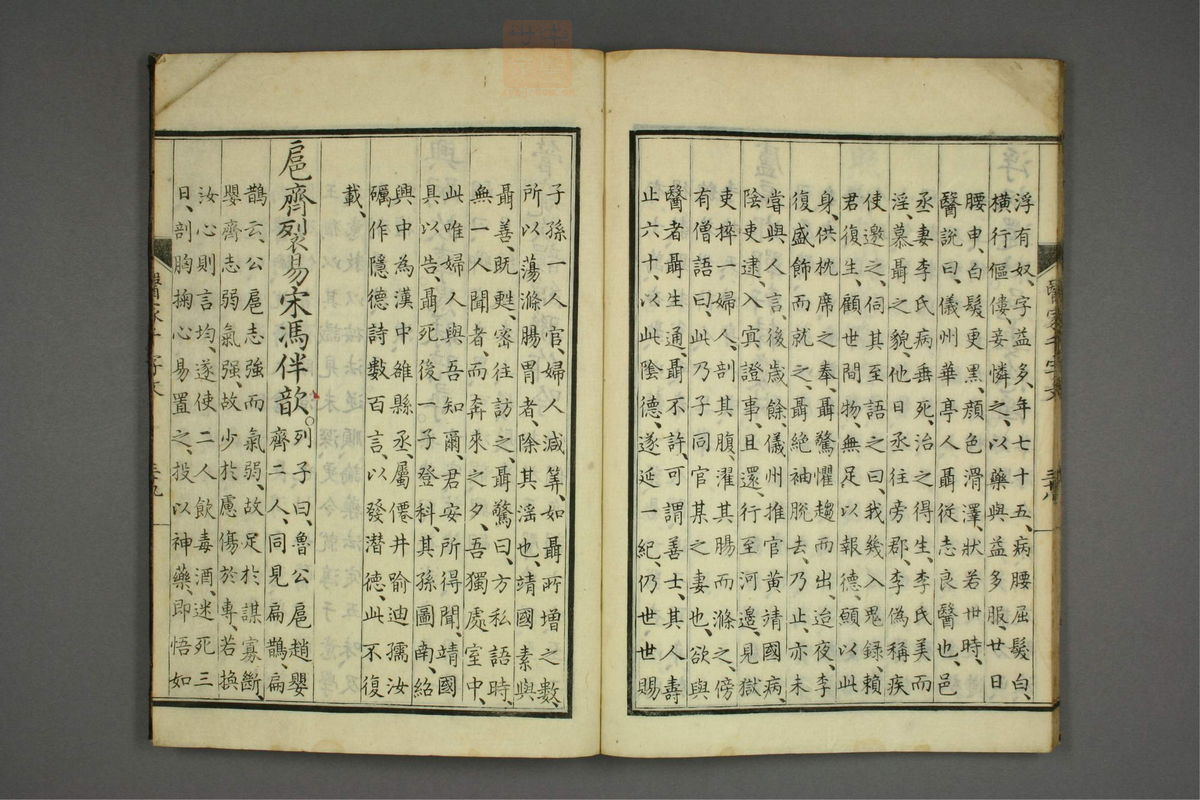 浮有奴、字益多、年七十五、病腰屈髮白、
橫行傴僂妾憐之、以藥與益多服、廿日
腰申、白髮更黑、顏色滑澤狀若卅時、
醫說曰、儀州華亭人聶從志良醫也、邑
丞妻李氏病垂死、治之得生、李氏美而
淫、慕聶之貌、他日丞往旁郡、李偽稱疾
使邀之、伺其至語之曰、我幾入鬼錄賴
君復生、顧世間物、無足以報德、願以此
身、供枕席之奉、聶驚懼趨而出、迨夜、李
復盛飾而就之、聶絕袖脫去、乃止、亦未
嘗與人言、後歲餘儀州推官黃靖國病、
陰吏逮、入冥證事、且還、行至河邊、見獄
吏捽一婦人、剖其腹、濯其腸而滌之、傍
有僧語曰、此乃子同官某之妻也、欲與
醫者聶生通、聶不許、可謂善士、其人壽
止六十、以此陰德、遂延一紀、仍世世賜
子孫一人官、婦人減筭、如聶所增之數、
所以蕩滌腸胃者、除其淫也、靖國素與
聶善、既甦、密往訪之、聶驚曰、方私語時、
無一人聞者、而奔來之夕、吾獨處室中、
此唯婦人與吾知爾、君安所得聞、靖國
具以告、聶死後、一子登科、其孫圖南紹
興中為漢中雒縣丞、屬僊井喻迪孺汝
礪作隱德詩數百言、以發潛德、此不復
載、
扈齊列褮易宋馮伴歆○列子曰、魯公扈趙嬰
齊二人、同見扁鵲、扁
鵲云、公扈志強而氣弱、故足於謀寡斷、
嬰齊志弱氣強、故少於慮傷於專、若換
汝心則言均、遂使二人飲毒酒、迷死三
日、剖胸掬心易置之、投以神藥、即悟如
醫家千字文
三十八
醫家千字文
三十九